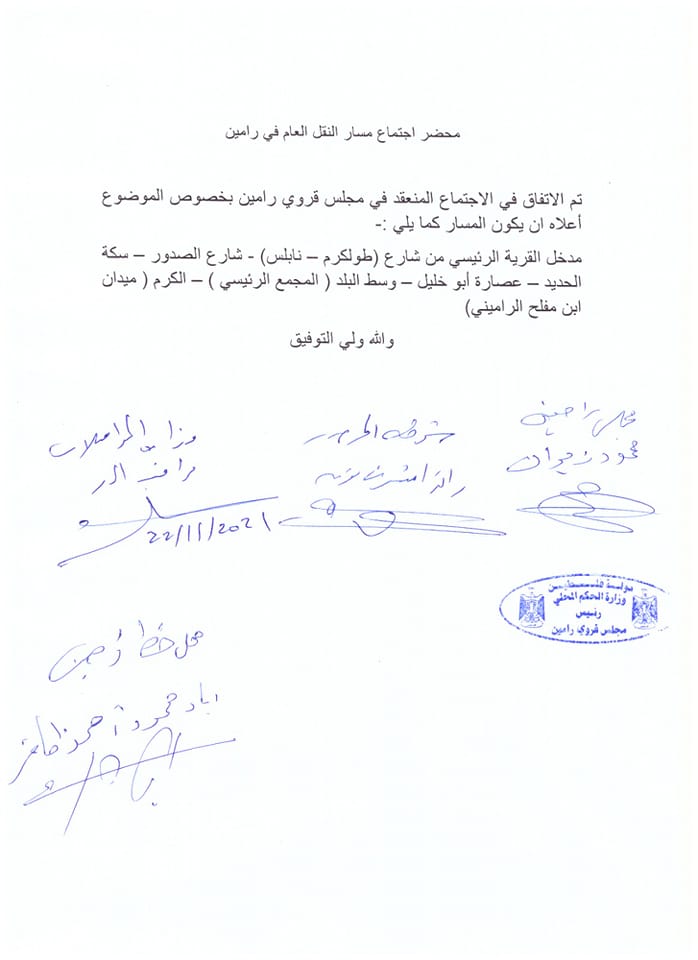 محضر اجتماع مسار النقل العام في رامين
تم الاتفاق في الاجتماع المنعقد في مجلس قروي رامين بخصوص الموضوع
أعلاه ان يكون المسار كما يلي :-
مدخل القرية الرئيسي من شارع (طولكرم – نابلس) - شارع الصدور – سكة
الحديد – عصارة أبو خليل – وسط البلد ( المجمع الرئيسي ) – الكرم ( ميدان
ابن مفلح الراميني)
والله ولي التوفيق
مجلس رامين
محمود
شرطة المرور
وزارة المواصلات
22/11/2021
دولة فلسطين
وزارة الحكم المحلي
رئيس
مجلس قروي رامين
اياد محمود احمد